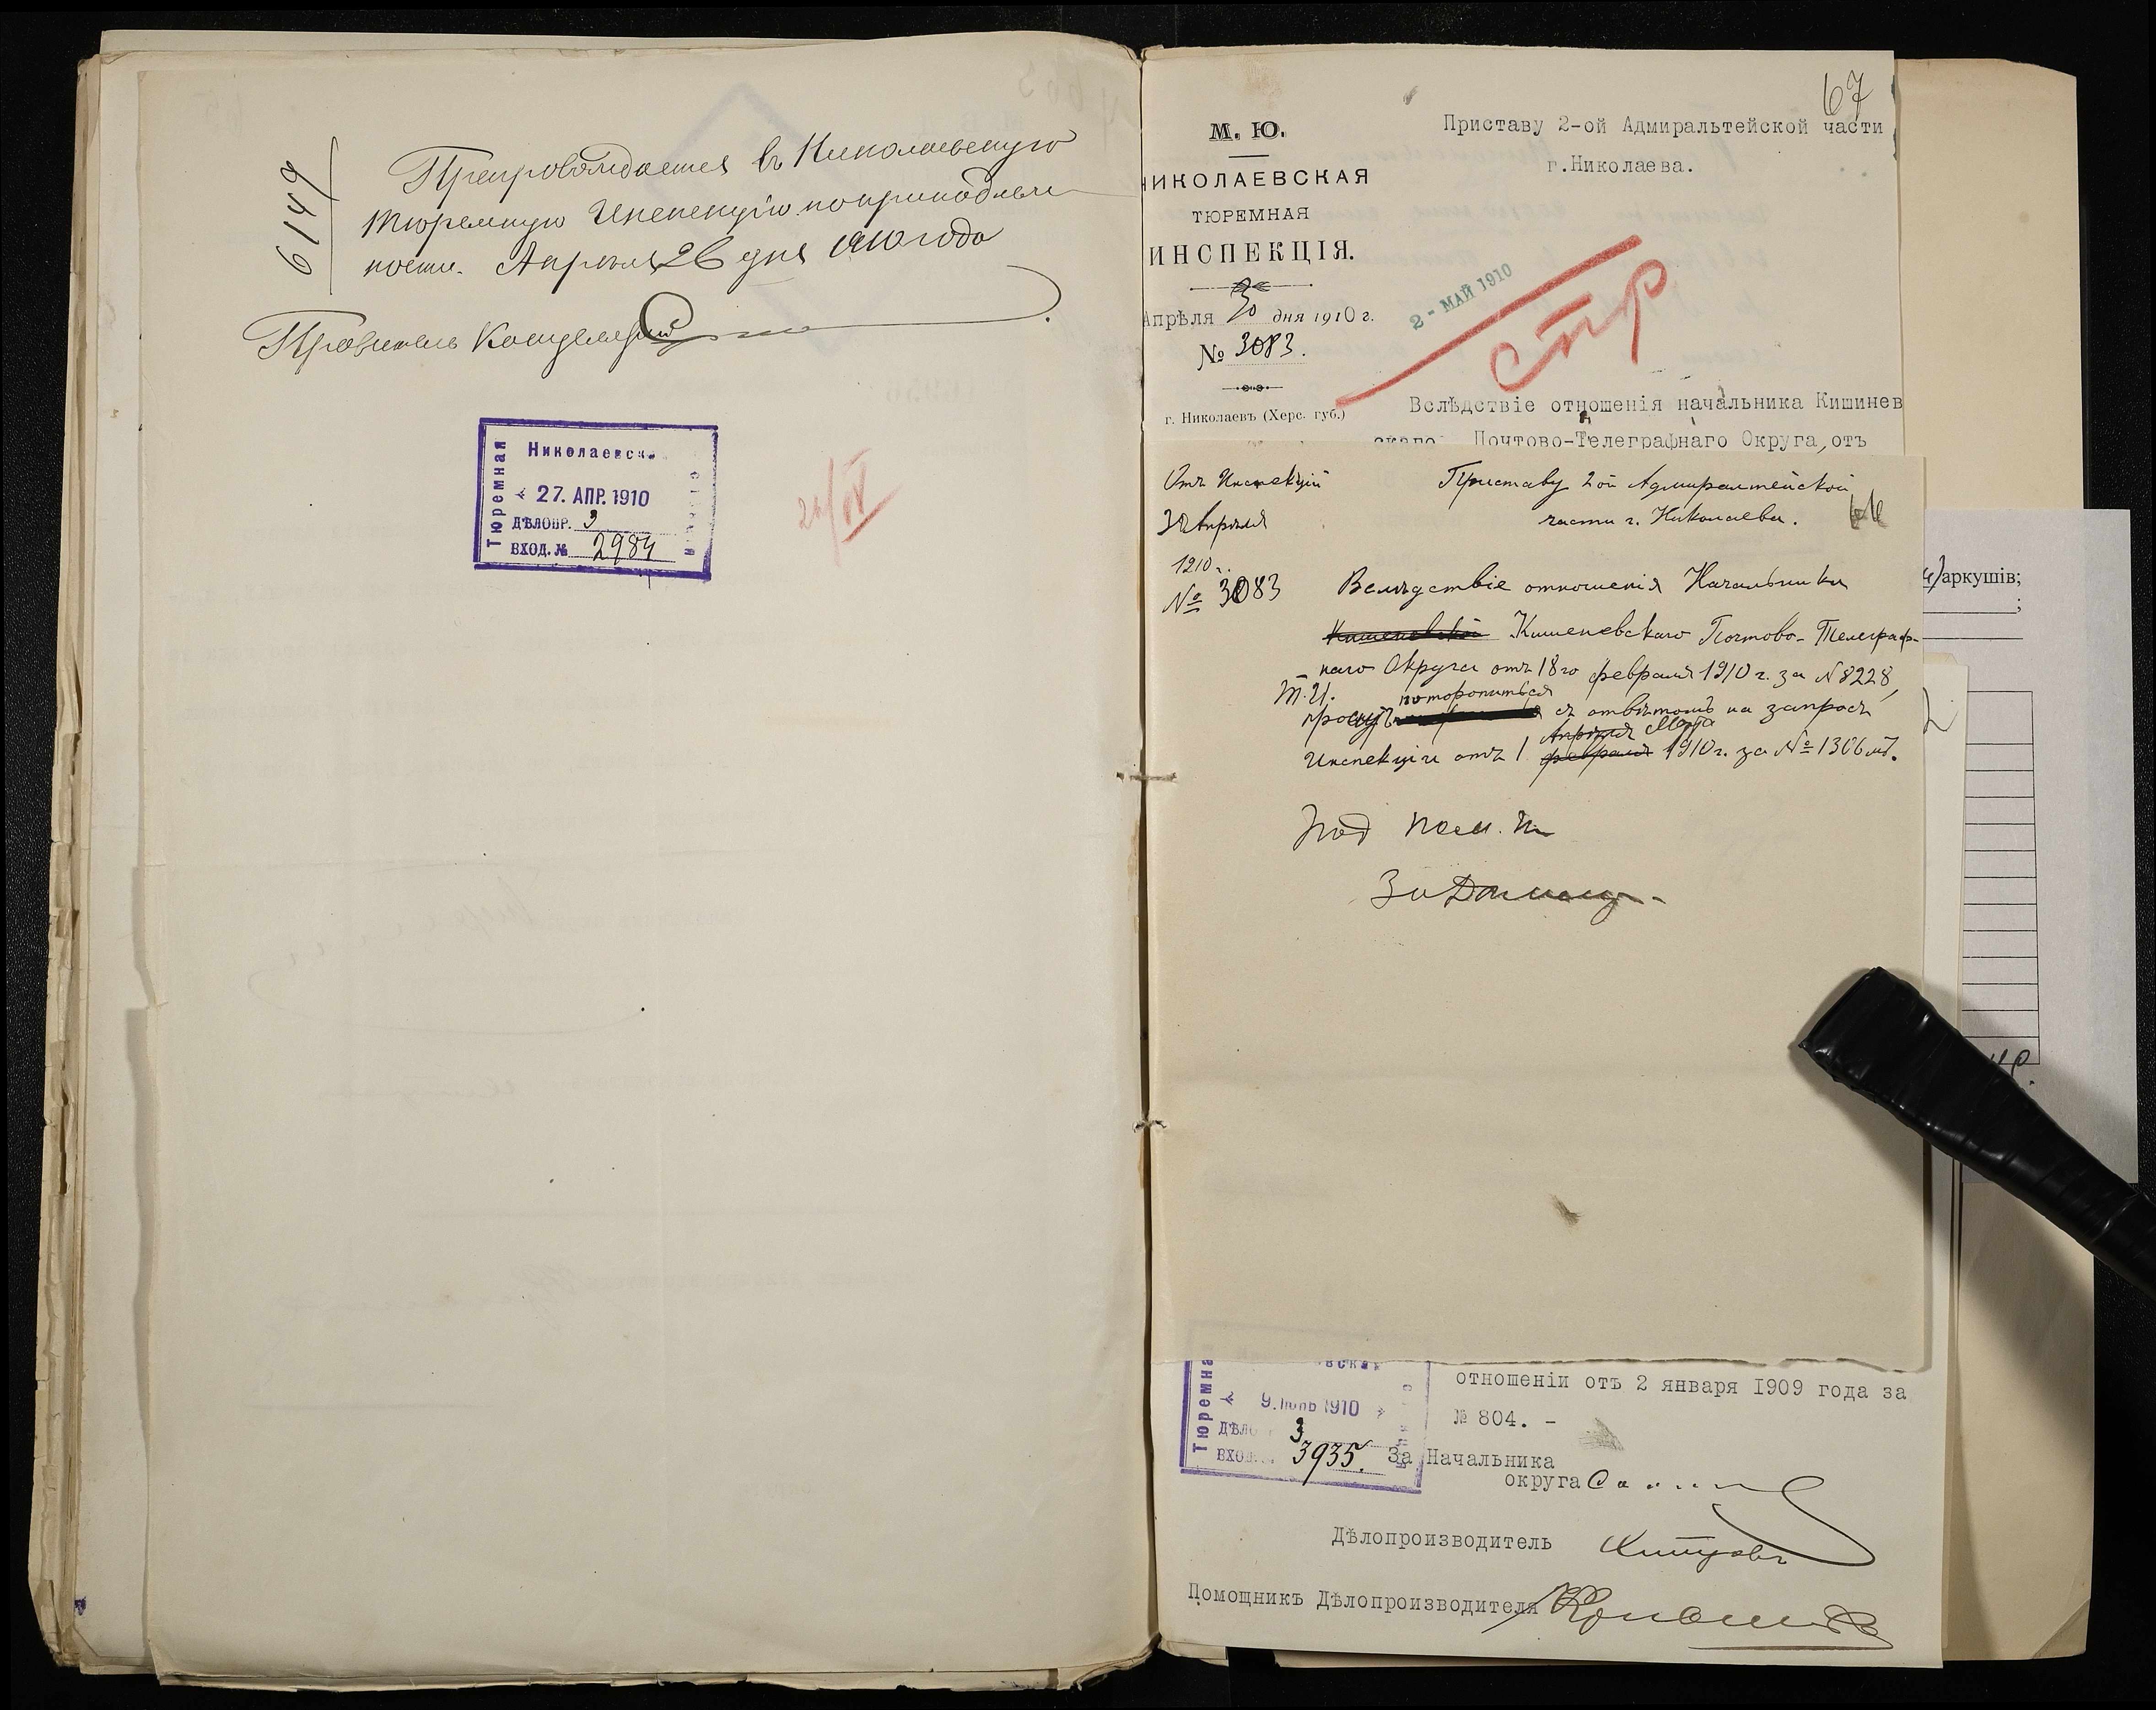 6149
Препровождается въ Николаевскую
тюремную Инспекцію по принадлеж
ности. Апрѣля 26 дня 1910 года
Правитель Канцеляріи
Николаевск
Тюремная
27. АПР. 1910
ДѢЛОПР. 3
ВХОД. № 2984
67
М. Ю.
НИКОЛАЕВСКАЯ
ТЮРЕМНАЯ
ИНСПЕКЦІЯ.
Апрѣля 30 дня 1910 г.
№ 3083.
г. Николаевъ (Херс. губ.)
Приставу 2-ой Адмиральтейской части
г.Николаева.
2 - МАЙ 1910
стр
Вслѣдствіе отношенія начальника Кишинев
скаго Почтово-Телеграфнаго Округа,отъ
Отъ Инспекціи
30 Апрѣля
1910 г.
№ 3083
Приставу 2ой Адмиралтейской
части г. Николаева.
66
Вслѣдствіе отношенія Начальника
Кишеневской Кишеневскаго Почтово-Телеграф-
наго Округа отъ 18го февраля 1910 г. за № 8228,
Т. И. поторопиться
проситъ съ отвѣтомъ на запросъ
Апрѣля Марта
Инспекціи отъ 1 февраля 1910 г. за № 1306
отношеніи отъ 2 января 1909 года за
№ 804. -
Тюремна
вская
9. ІЮНЬ 1910
ДѢЛО 3
ВХОД. 3935.
За Начальника
округа
Дѣлопроизводитель
Помощникъ Дѣлопроизводителя
аркушів;